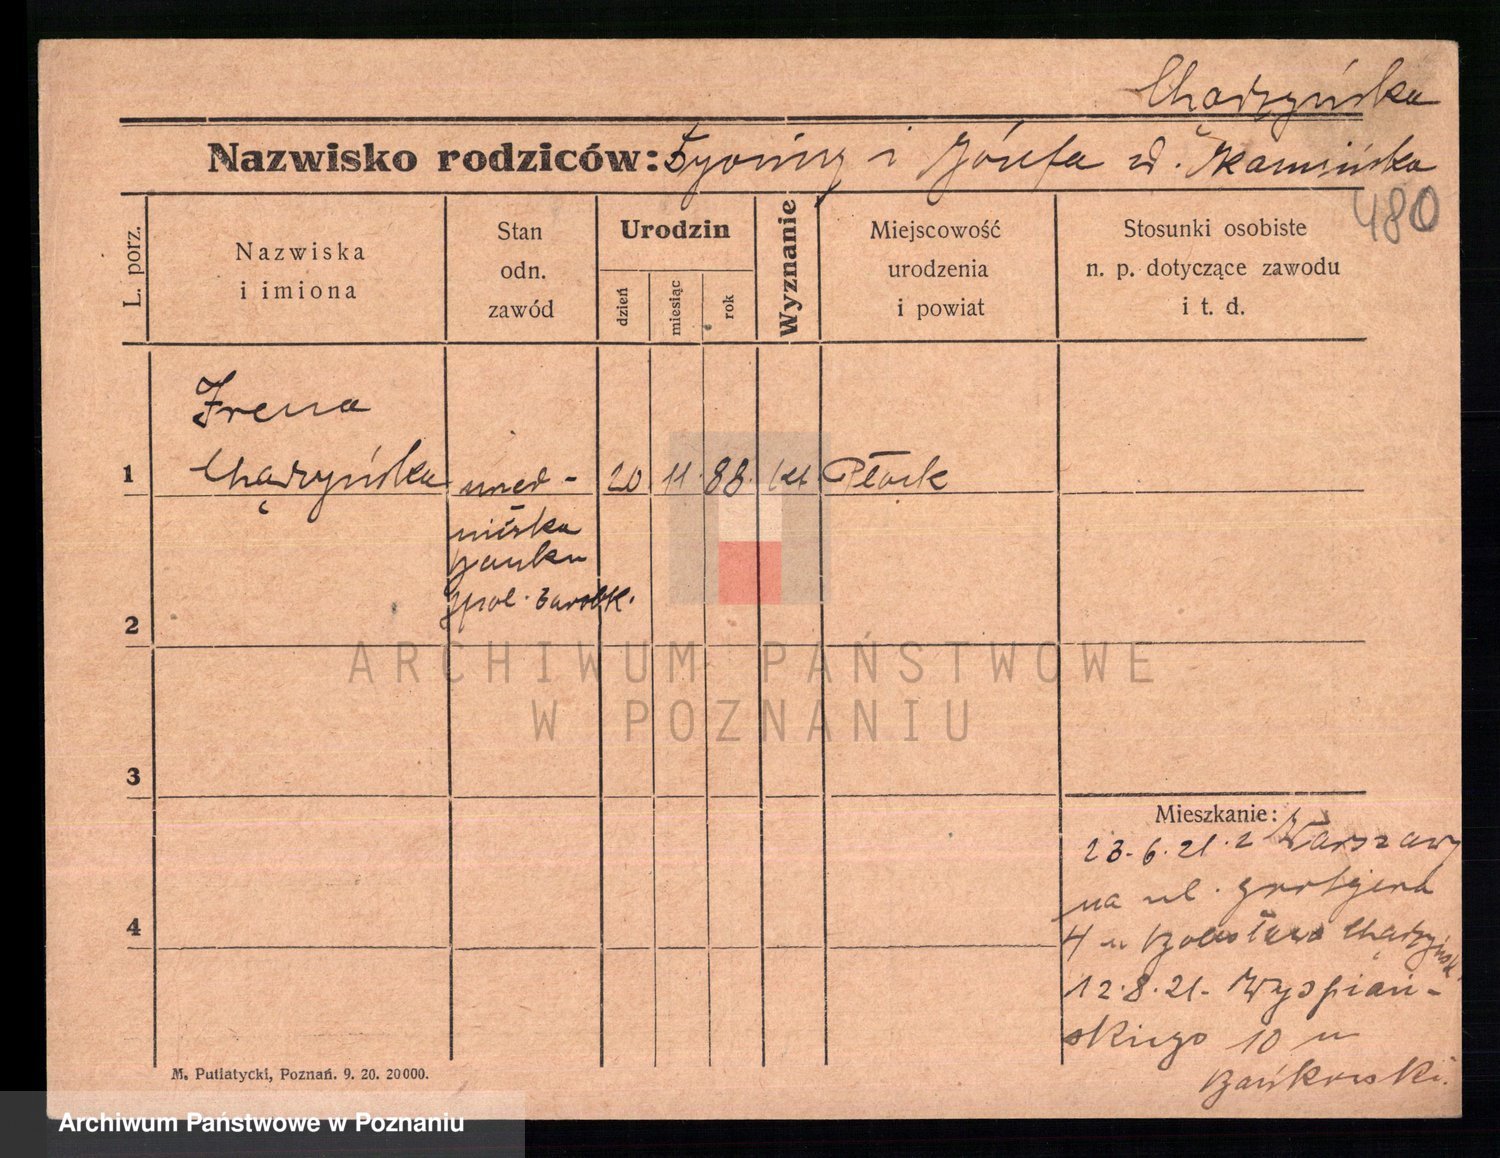 Chądzyńska
Nazwisko rodziców: i Józefa z d. Kamińska
480
L. porz.
Nazwiska
i imiona
Stan
odn.
zawód
Urodzin
dzień
miesiąc
rok
Wyznanie
Miejscowość
urodzenia
i powiat
Stosunki osobiste
n. p. dotyczące zawodu
i t. d.
Irena
1 Chądzyńska urzęd- 20 11. 88. kat Płock
niczka
banku
spół. zarobk.
2
3
4
Mieszkanie:
23.6.21. z Warszawy
na ul. Grottgera
4 u Bolesława Chądzyńsk.
12.8.21. Wyspiań-
skiego 10 u
Bańkowski.
M. Putiatycki, Poznań. 9. 20. 20 000.
ARCHIWUM PAŃSTWOWE
W POZNANIU
Archiwum Państwowe w Poznaniu